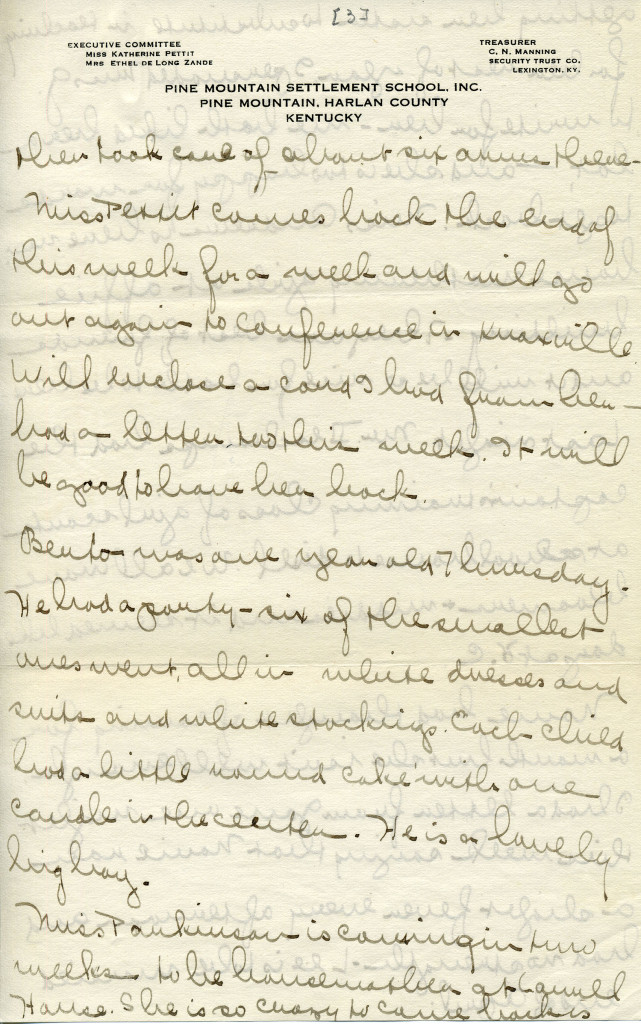 [3]
EXECUTIVE COMMITTEE
MISS KATHERINE PETTIT
MRS ETHEL DE LONG ZANDE
TREASURER
C. N. MANNING
SECURITY TRUST CO.
LEXINGTON, KY.
PINE MOUNTAIN SETTLEMENT SCHOOL, INC.
PINE MOUNTAIN, HARLAN COUNTY
KENTUCKY
then took care of about six around there-
Miss Pettit comes back the end of
this week for a week and will go
out again to conference in Knoxville.
Will enclose a card I had from her-
had a letter, too this week. It will
be good to have her back.
Bento was one year old Thursday.
He had a party - six of the smallest
ones went, all in white dresses and
suits and white stockings. Each child
had a little round cake with one
candle in the center. He is a lovely
big boy.
Miss Parkinson is coming in two
weeks to be housemother at Laurel
House. She is so crazy to come back is